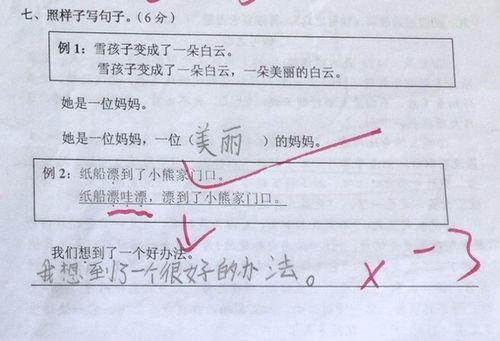 七、照样子写句子。（6分）
例1：雪孩子变成了一朵白云。
雪孩子变成了一朵白云，一朵美丽的白云。
她是一位妈妈。
她是一位妈妈，一位（美丽）的妈妈。
例2：纸船漂到了小熊家门口。
纸船漂哇漂，漂到了小熊家门口。
我们想到了一个好办法。
我想到了一个很好的办法。 × -3